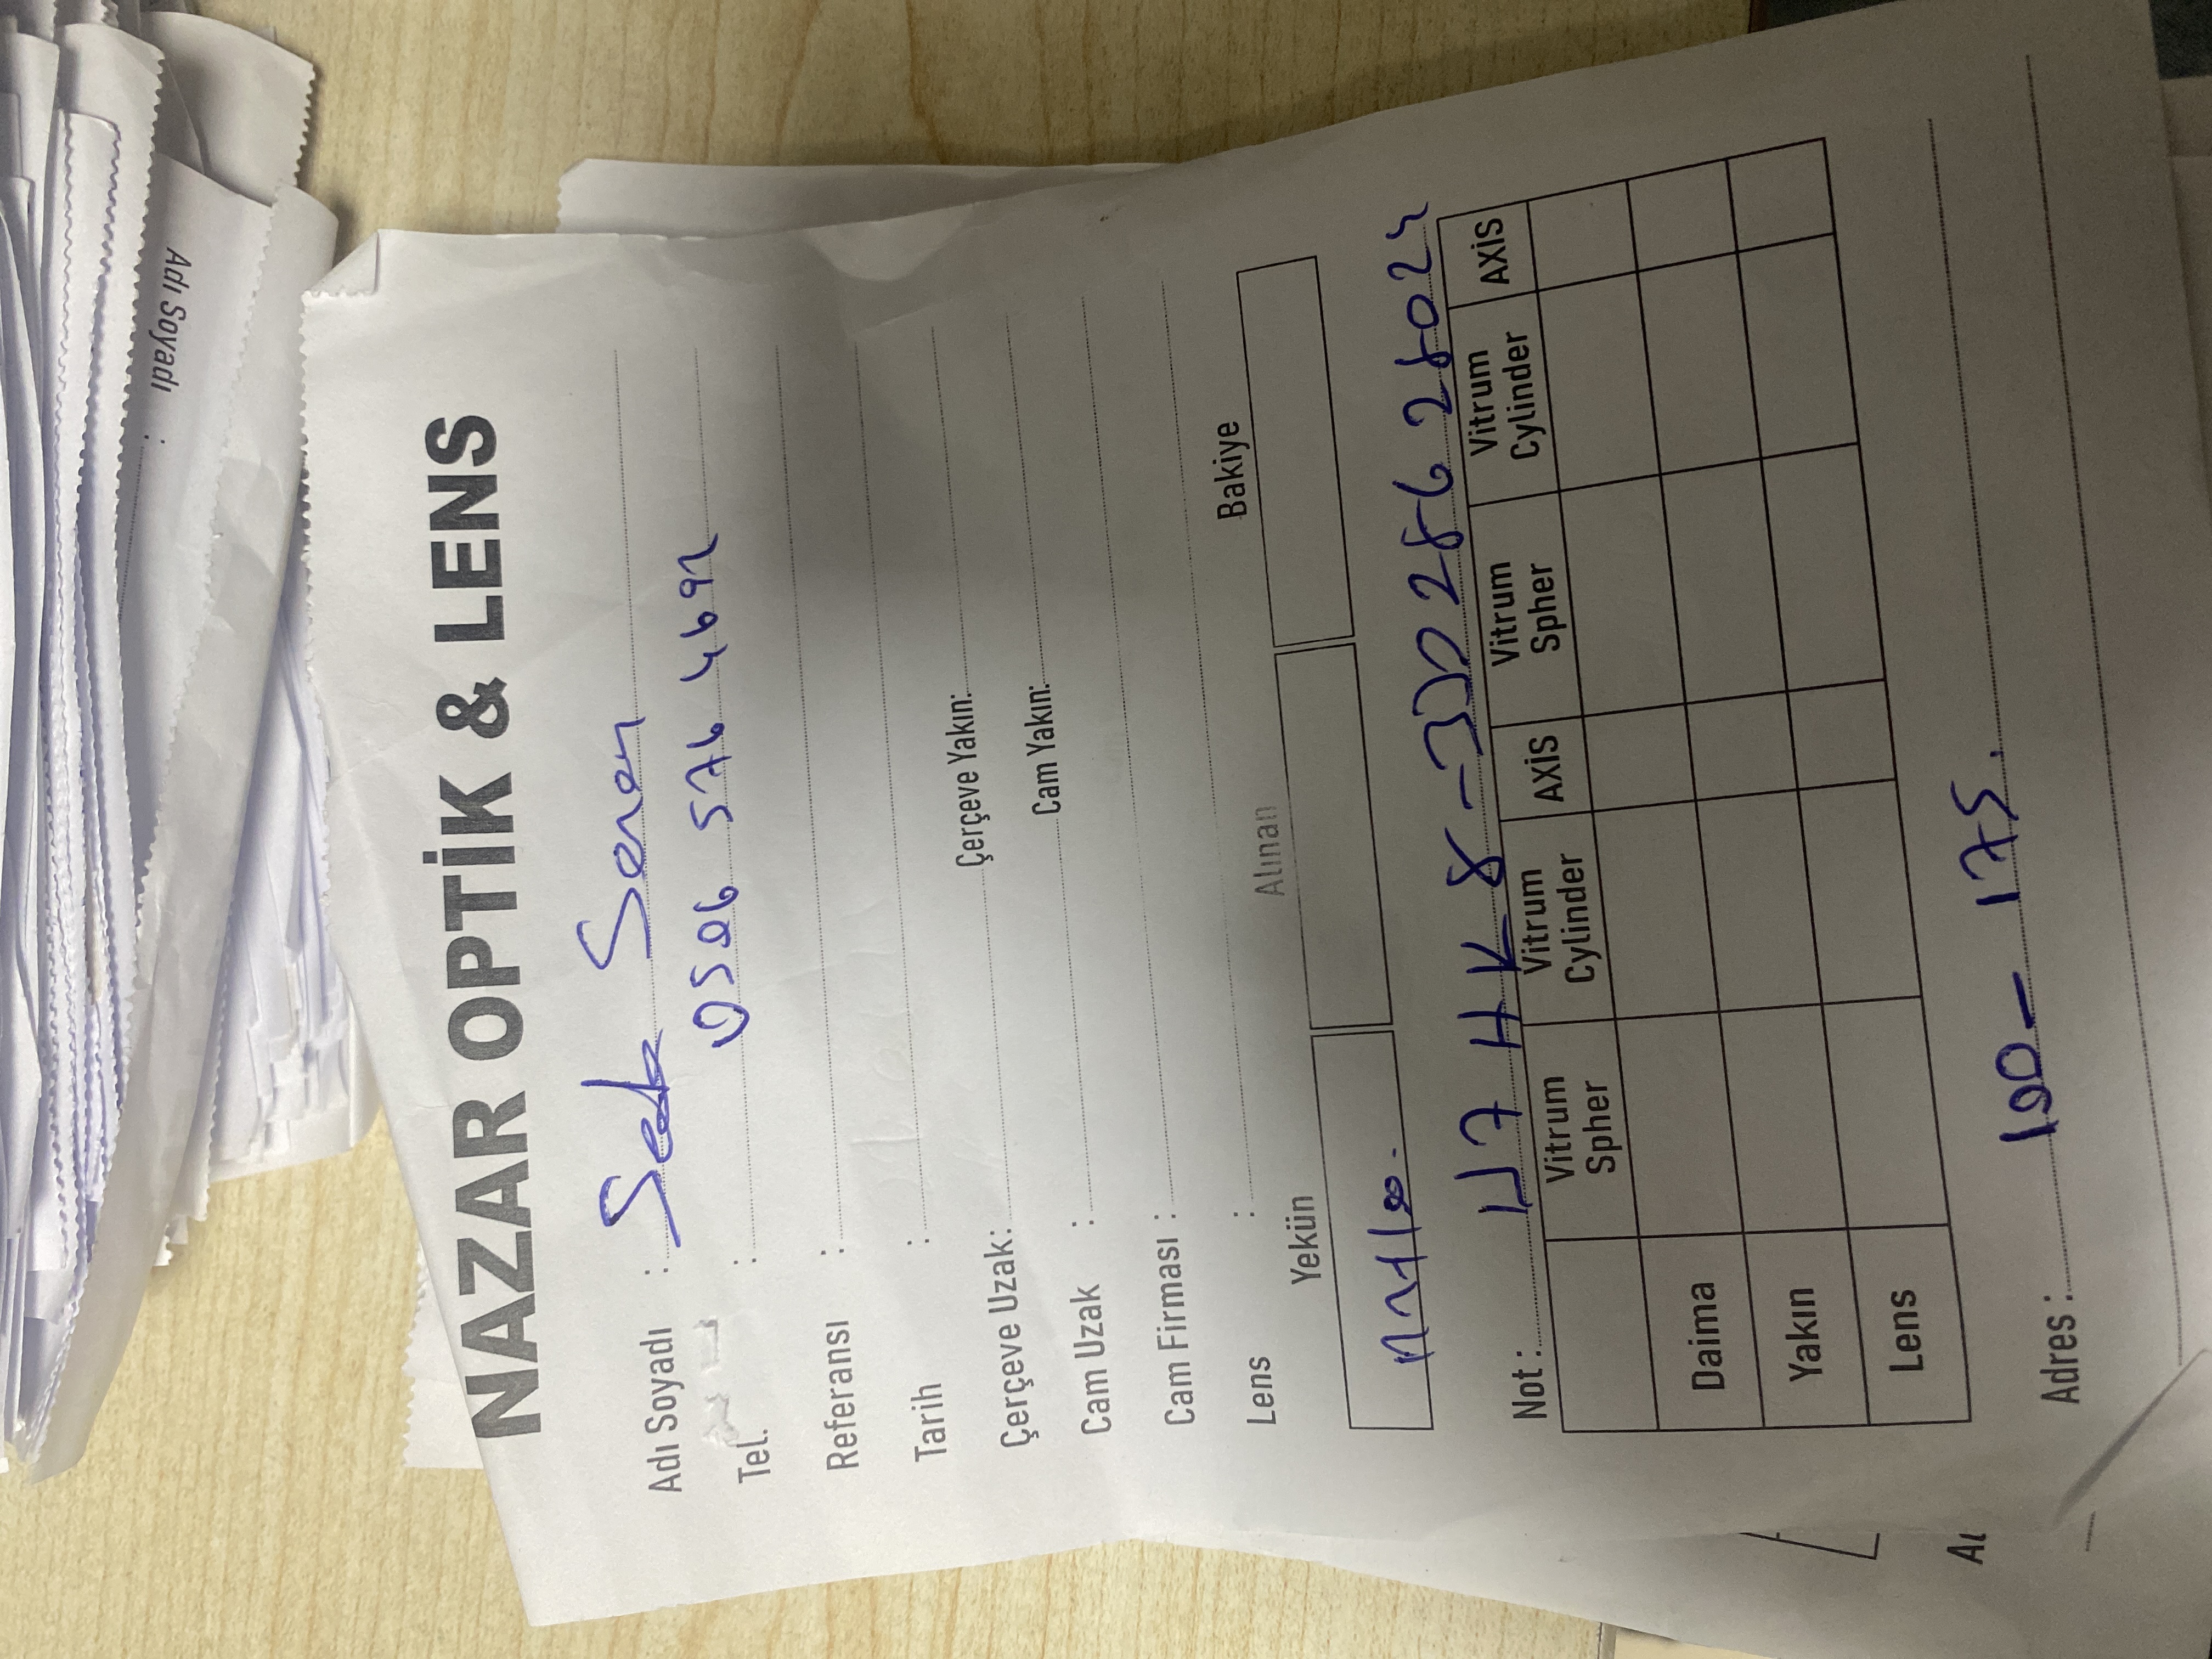 Adı Soyadı :
NAZAR OPTİK & LENS
Adı Soyadı : Seda Seren
Tel. : 0506 576 4692
Referansı :
Tarih :
Çerçeve Uzak: Çerçeve Yakın:
Cam Uzak : Cam Yakın:
Cam Firması :
Lens :
Yekün Alınan Bakiye
Not : 28628024
Vitrum Spher Vitrum Cylinder AXİS Vitrum Spher Vitrum Cylinder AXİS
Daima
Yakın
Lens
Adres : 100- 175.